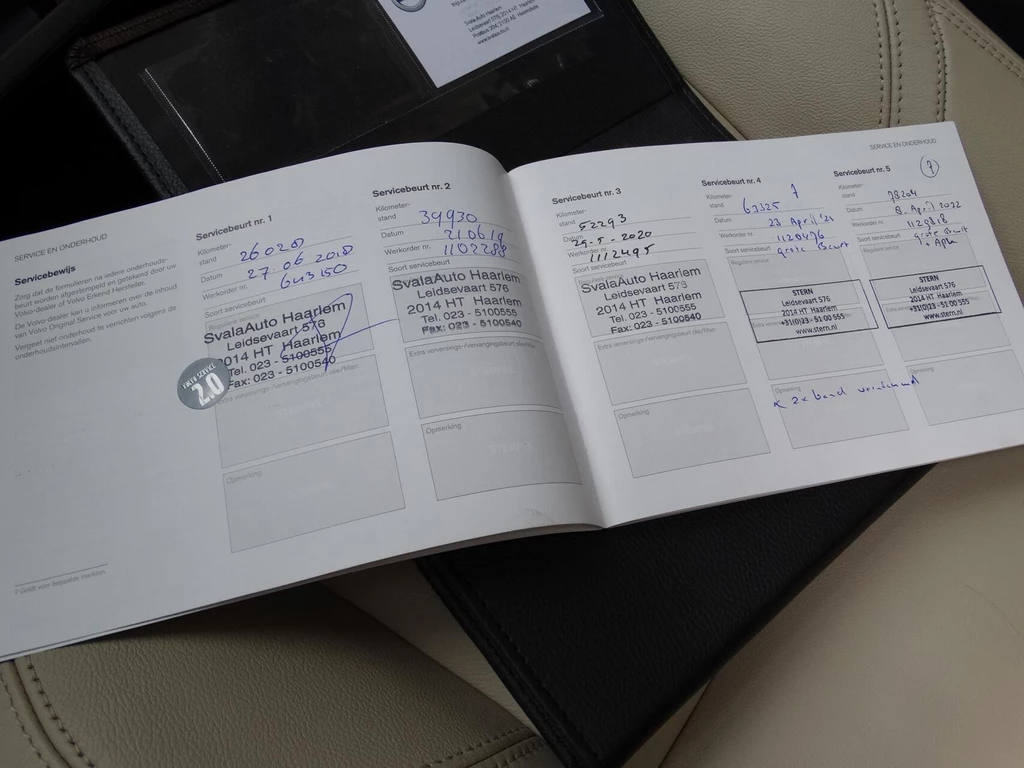 SvalaAuto Haarlem
Leidsevaart 576, 2014 HT Haarlem
Postbus 204, 2100 AE Heemstede
www.svalaauto.nl
SERVICE EN ONDERHOUD
Servicebewijs
Zorg dat de formulieren na iedere onderhouds-
beurt worden afgestempeld en getekend door uw
Volvo-dealer of Volvo Erkend Hersteller.
De Volvo-dealer kan u informeren over de inhoud
van Volvo Original Service voor uw auto.
Vergeet niet onderhoud te verrichten volgens de
onderhoudsintervallen.
Geldt voor bepaalde markten.
Servicebeurt nr. 1
Kilometer-
stand 26020
Datum 27 06 2018
Werkorder nr. 643150
Soort servicebeurt
SvalaAuto Haarlem
Leidsevaart 576
2014 HT Haarlem
Tel. 023 - 5100555
Fax: 023 - 5100540
VOLVO SERVICE
2.0
Extra verversings-/vervangingsbeurt olie/filter
Opmerking
Servicebeurt nr. 2
Kilometer-
stand 39930
Datum 210619
Werkorder nr. 1102288
Soort servicebeurt
SvalaAuto Haarlem
Leidsevaart 576
2014 HT Haarlem
Tel. 023 - 5100555
Fax: 023 - 5100540
Extra verversings-/vervangingsbeurt olie/filter
Opmerking
Servicebeurt nr. 3
Kilometer-
stand 52293
Datum 29-5-2020
Werkorder nr. 1112495
Soort servicebeurt
SvalaAuto Haarlem
Leidsevaart 576
2014 HT Haarlem
Tel. 023 - 5100555
Fax: 023 - 5100540
Extra verversings-/vervangingsbeurt olie/filter
Opmerking
Servicebeurt nr. 4
Kilometer-
stand 63325
Datum 23 April '21
Werkorder nr. 1120476
Soort servicebeurt grote Beurt
Reguliere service
STERN
Leidsevaart 576
2014 HT Haarlem
+31(0)23 - 51 00 555
www.stern.nl
Opmerking
2x band
SERVICE EN ONDERHOUD
Servicebeurt nr. 5
7
Kilometer-
stand 78204
Datum 8 April 2022
Werkorder nr. 1129818
Soort servicebeurt Grote Beurt
+ Apk
STERN
Leidsevaart 576
2014 HT Haarlem
+31(0)23 - 51 00 555
www.stern.nl
Opmerking